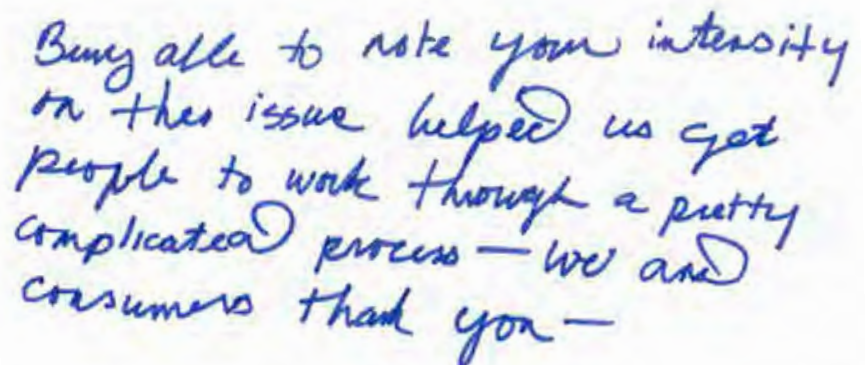 Being able to note your intensity
on this issue helped us get
people to work through a pretty
complicated process — we and
consumers thank you —